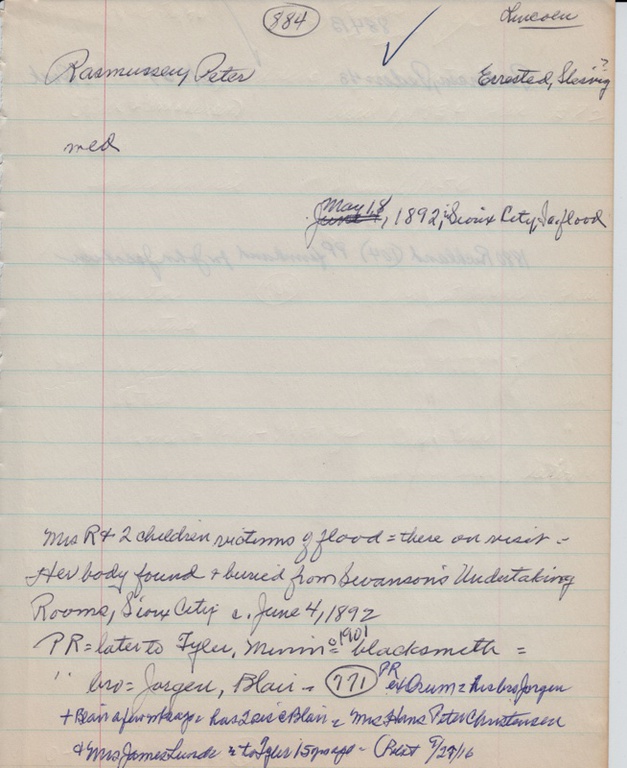 884
Lincoln
Rasmussen, Peter
Errested, Slesvig ?
med
May 18
June 4, 1892, Sioux City, Ia. flood
Mrs R + 2 children victims of flood = there on visit =
Her body found + buried from Swanson's Undertaking
Rooms, Sioux City c. June 4, 1892
PR = later to Tyler, Minn = c 1901 blacksmith =
" bro = Jorgen, Blair = 771 PR Orum = his bro Jorgen
+ Blair a few days = has 2 sis Blair = Mrs Hans Peter Christensen
& Mrs James Lunde = to Tyler 15 yrs ago = (Pilot 9/27/16